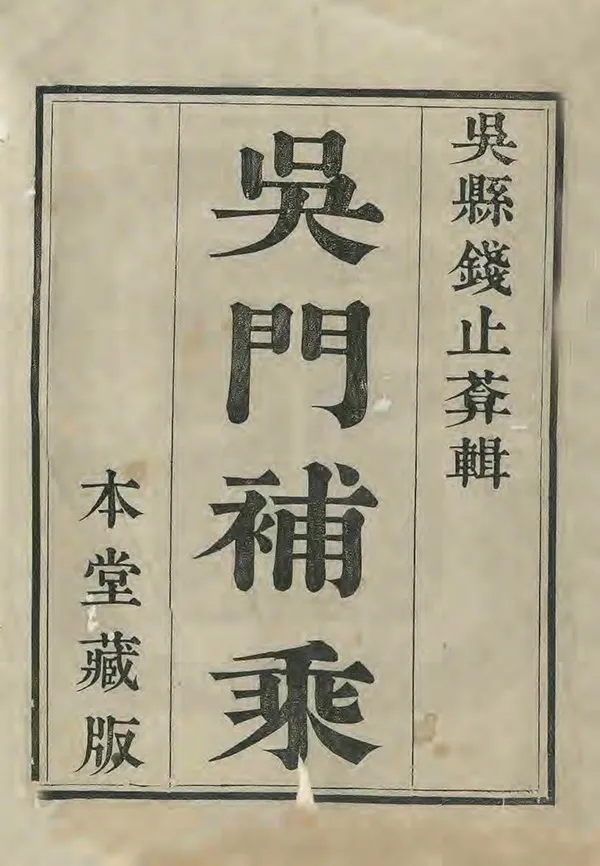 吳縣錢止葊輯
吳門補乘
本堂藏版